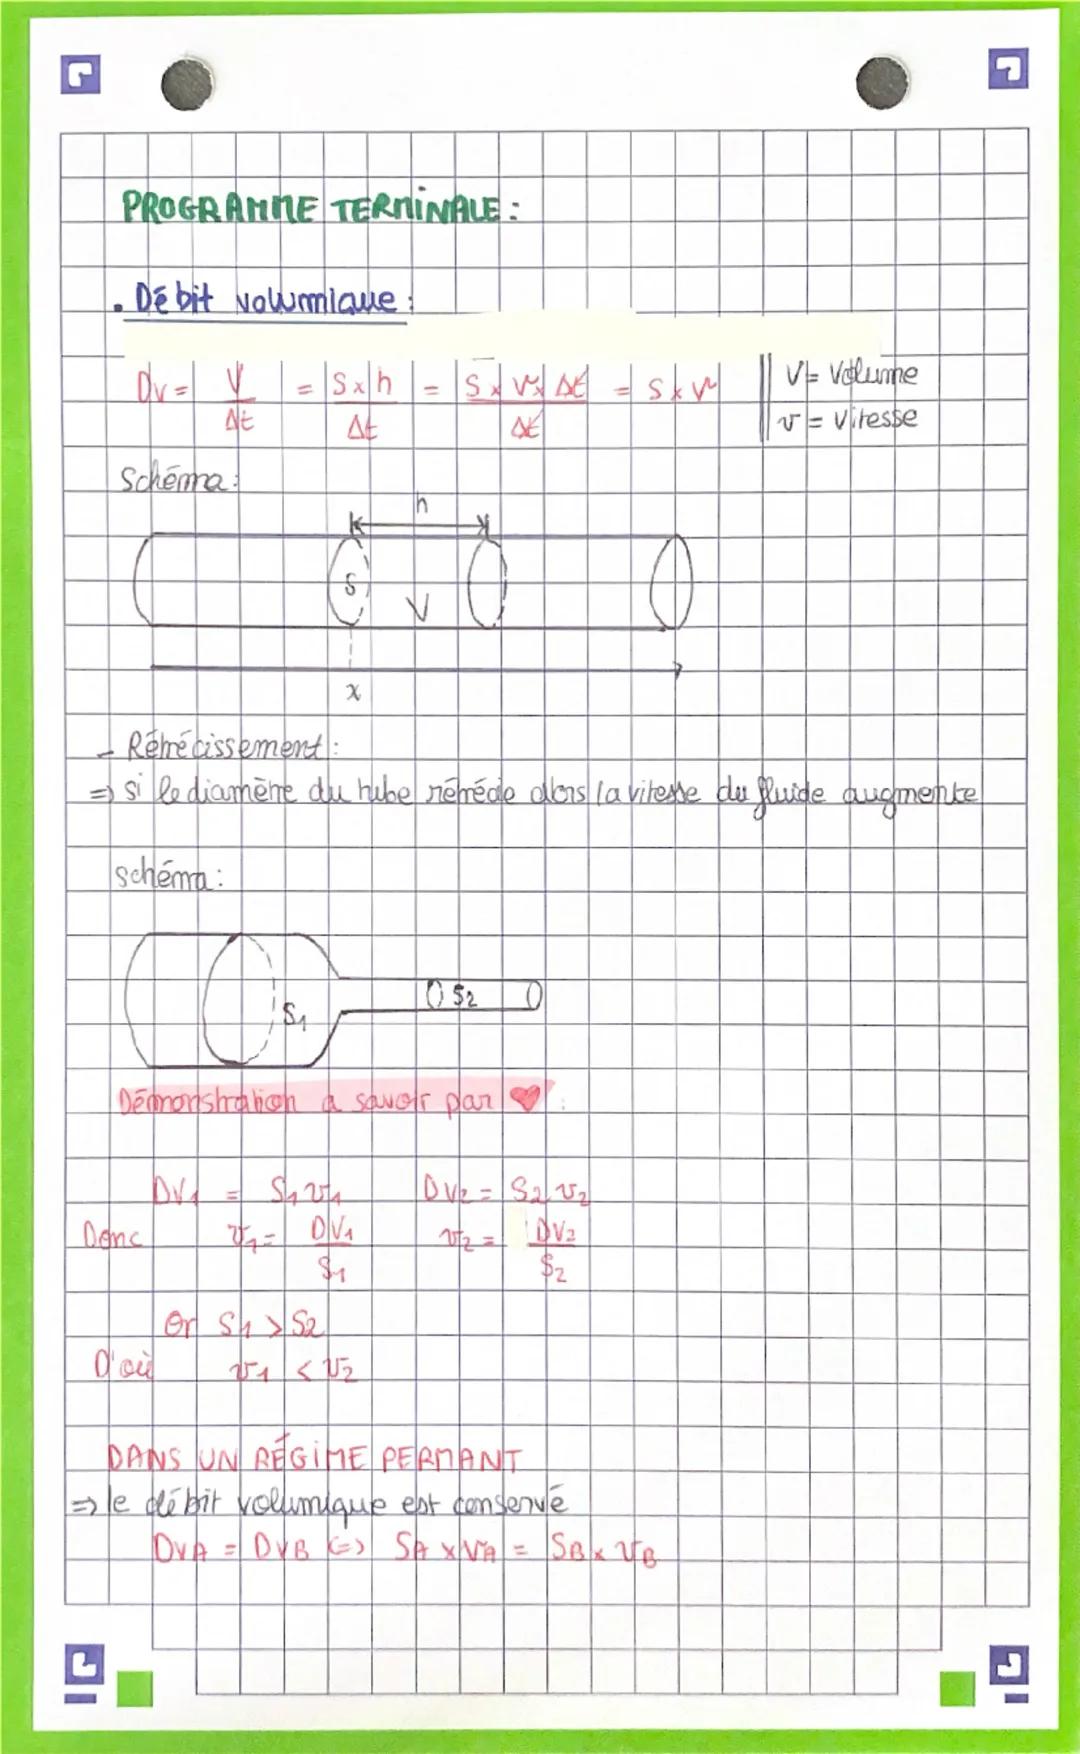 PROGRAMME TERMINALE :
. Débit volumique :
Dv = V/Δt = S x h/Δt = S x v x Δt/Δt = S x v
V = Volume
v = Vitesse
Schéma :
h
S
V
x
- Rétrécissement :
=> si le diamètre du tube rétrécie alors la vitesse du fluide augmente
schéma :
S1
S2
Démonstration a savoir par ❤ :
Dv1 = S1 v1 Dv2 = S2 v2
Donc v1 = Dv1/S1 v2 = Dv2/S2
Or S1 > S2
D'où v1 < v2
DANS UN RÉGIME PERMANT
=> le débit volumique est conservé
DvA = DvB <=> SA x vA = SB x vB